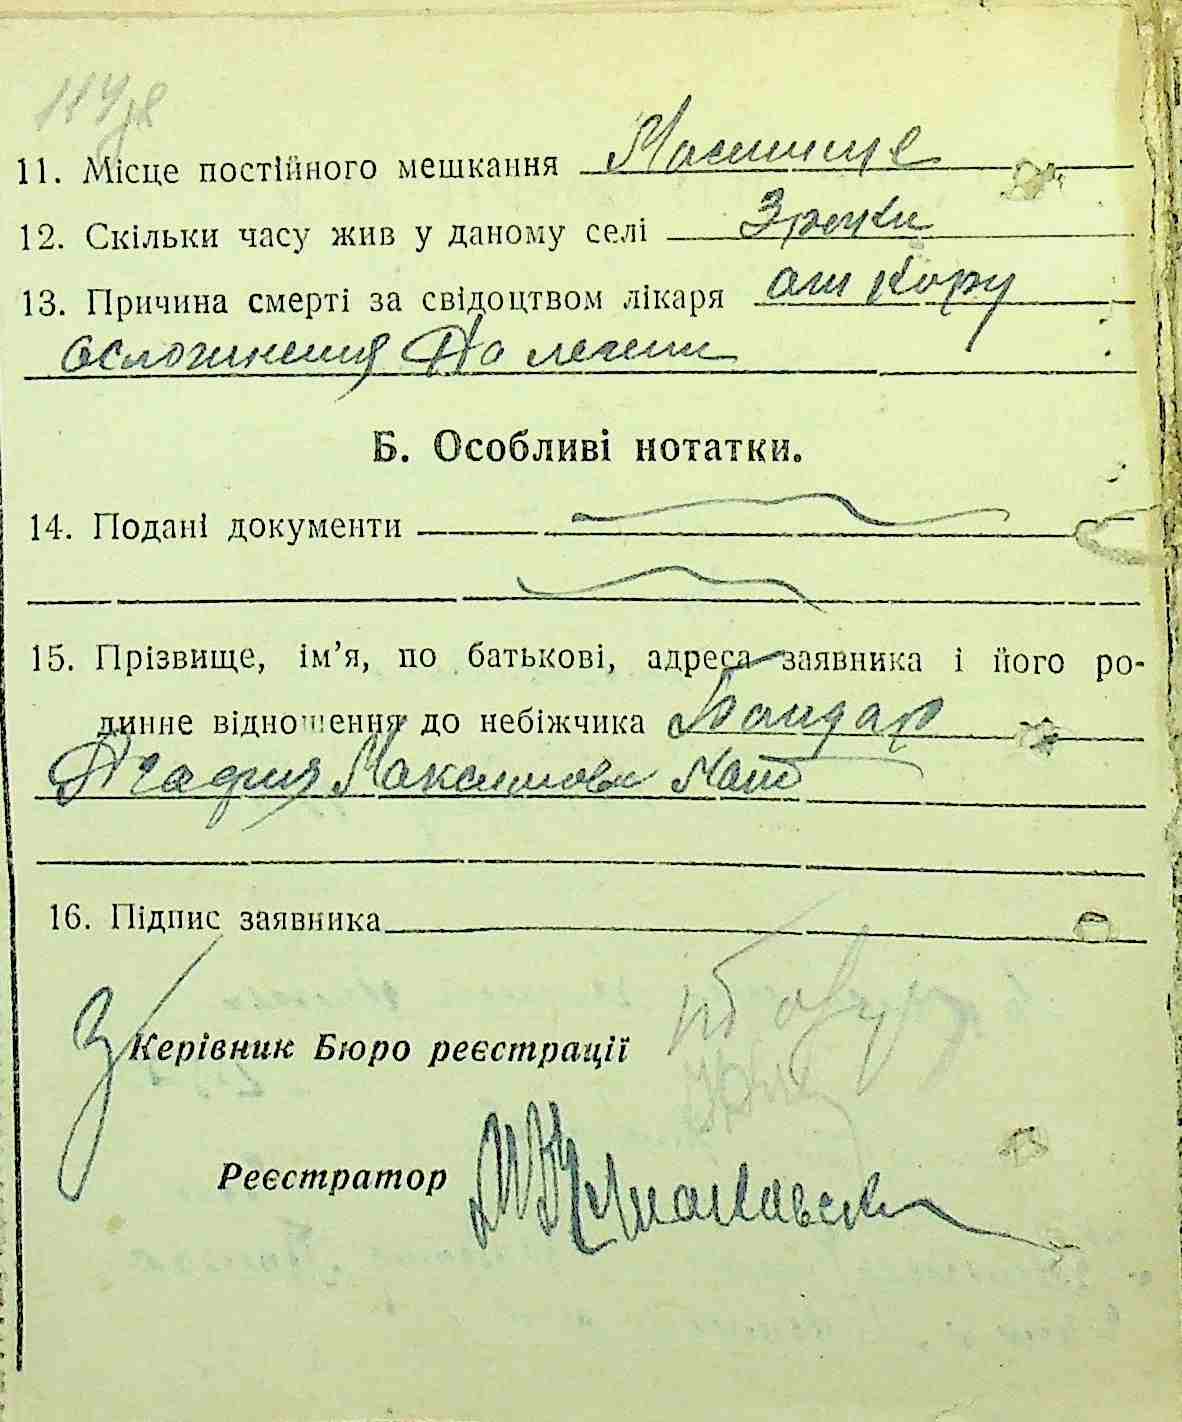 11. Місце постійного мешкання
12. Скільки часу жив у даному селі 3 роки
13. Причина смерті за свідоцтвом лікаря от кору
осложнения На легени
Б. Особливі нотатки.
14. Подані документи
15. Прізвище, ім’я, по батькові, адреса заявника і його ро-
динне відношення до небіжчика Бондар
Агафия Максимовн Мат
16. Підпис заявника
Керівник Бюро реєстрації
Реєстратор